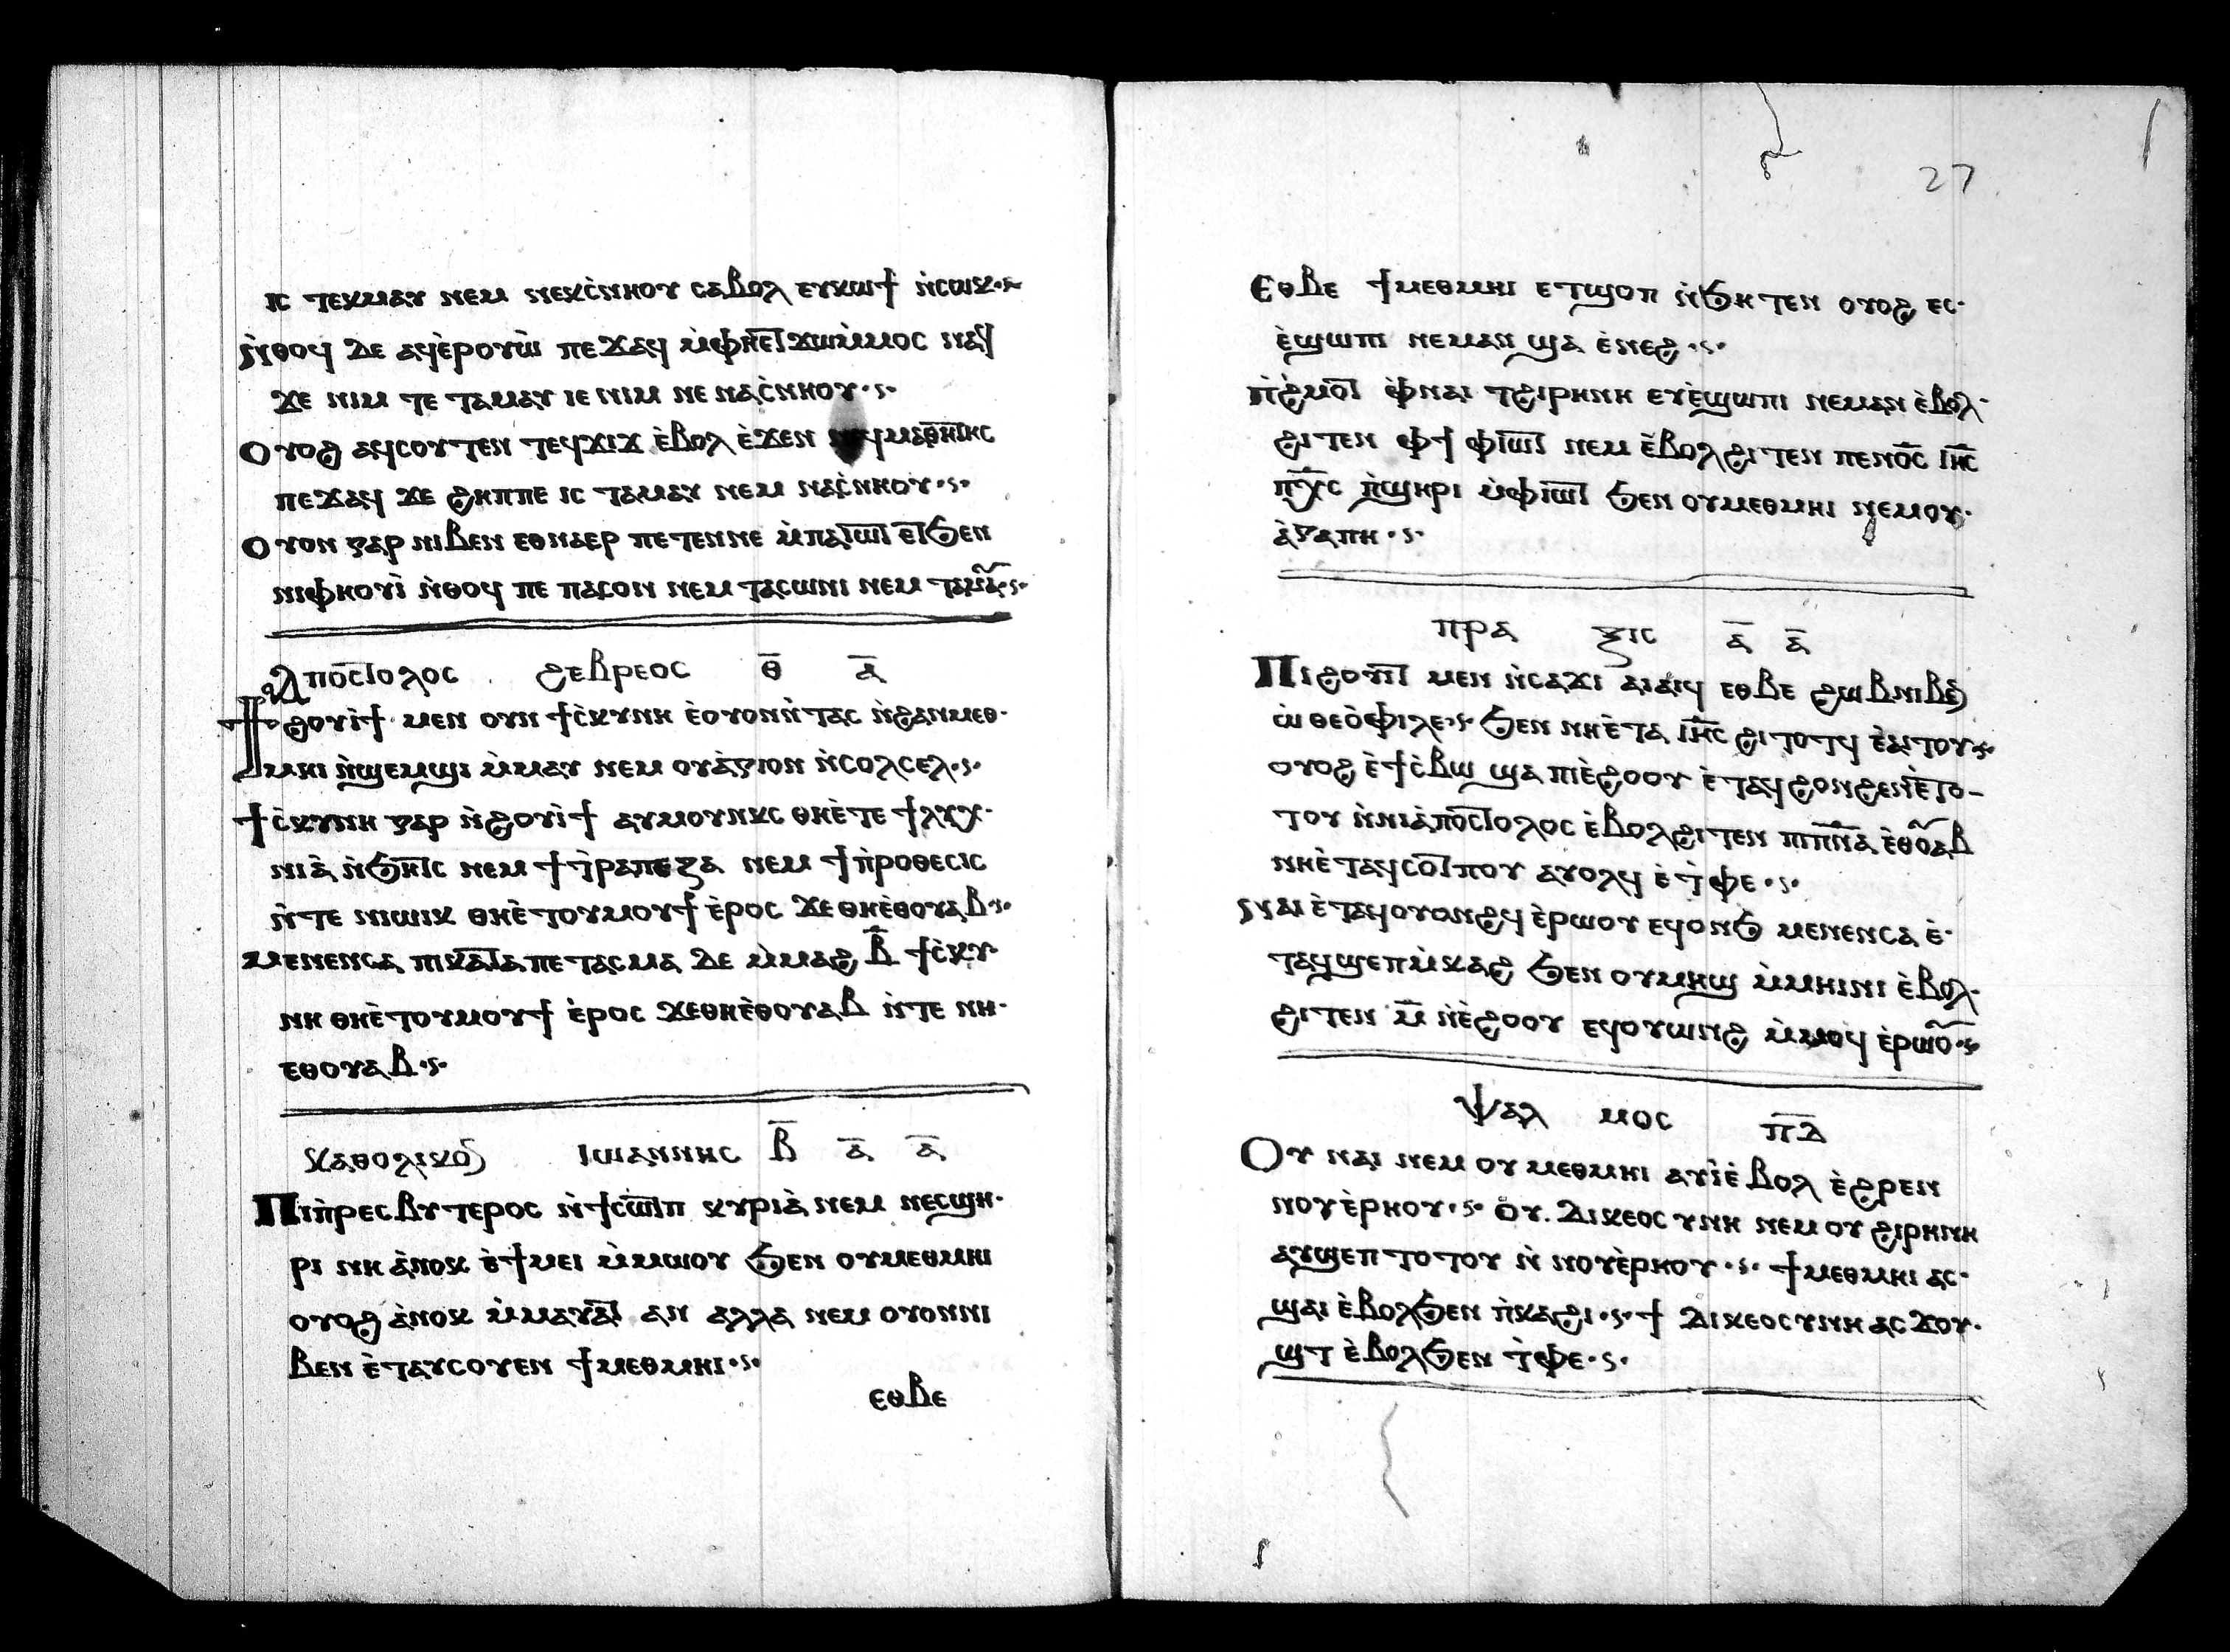 ⲓⲥ ⲧⲉⲕⲙⲁⲩ ⲛⲉⲙ ⲛⲉⲕⲥ̀ⲛⲏⲟⲩ ⲥⲁⲃⲟⲗ ⲉⲩⲕⲱϯ ⲛ̀ⲥⲱⲕ
ⲛ̀ⲑⲟϥ ⲇⲉ ⲁϥⲉ̀ⲣⲟⲩⲱ̀ ⲡⲉϫⲁϥ ⲙ̀ⲫⲏⲉⲧϫⲱⲙ̀ⲙⲟⲥ ⲛⲁϥ
ϫⲉ ⲛⲓⲙ ⲧⲉ ⲧⲁⲙⲁⲩ ⲓⲉ ⲛⲓⲙ ⲛⲉ ⲛⲁⲥ̀ⲛⲏⲟⲩ
ⲟⲩⲟϩ ⲁϥⲥⲟⲩⲧⲉⲛ ⲧⲉϥϫⲓϫ ⲉ̀ⲃⲟⲗ ⲉ̀ϫⲉⲛ ⲙⲁⲑⲏⲧⲏⲥ
ⲡⲉϫⲁϥ ϫⲉ ϩⲏⲡⲡⲉ ⲓⲥ ⲧⲁⲙⲁⲩ ⲛⲉⲙ ⲛⲁⲥ̀ⲛⲏⲟⲩ
ⲟⲩⲟⲛ ⲅⲁⲣ ⲛⲓⲃⲉⲛ ⲉⲑⲛⲁⲉⲣ ⲡⲉⲧⲉϩⲛⲉ ⲙ̀ⲡⲁⲓⲱⲧ ⲉⲧϧⲉⲛ
ⲛⲓⲫⲏⲟⲩⲓ̀ ⲛ̀ⲑⲟϥ ⲡⲉ ⲡⲁⲥⲟⲛ ⲛⲉⲙ ⲧⲁⲥⲱⲛⲓ ⲛⲉⲙ ⲧⲁⲙⲁ̃
ⲁⲡⲟⲥⲧⲟⲗⲟⲥ ϩⲉⲃⲣⲉⲟⲥ ⲑ̅ ⲁ̅
ϯϩⲟⲩⲓ̀ϯ ⲙⲉⲛ ⲟⲩⲛ ϯⲥ̀ⲕⲩⲛⲏ ⲉ̀ⲟⲩⲟⲛⲛ̀ⲧⲁⲥ ⲛ̀ϩⲁⲛⲙⲉⲑ
ⲙⲏⲓ ⲛ̀ϣⲉⲙϣⲓ ⲙ̀ⲙⲁⲩ ⲛⲉⲙ ⲟⲩⲁ̀ⲅⲓⲟⲛ ⲛ̀ⲥⲟⲗⲥⲉⲗ
ϯⲥ̀ⲕⲩⲛⲏ ⲅⲁⲣ ⲛ̀ϩⲟⲩⲓ̀ϯ ⲁⲩⲙⲟⲩⲛⲕⲥ ⲑⲏⲉ̀ⲧⲉ ϯⲗⲩⲭ
ⲛⲓⲁ̀ ⲛ̀ϧⲏⲧⲥ ⲛⲉⲙ ϯⲧ̀ⲣⲁⲡⲉⲍⲁ ⲛⲉⲙ ϯⲡ̀ⲣⲟⲑⲉⲥⲓⲥ
ⲛ̀ⲧⲉ ⲛⲓⲱⲓⲕ ⲑⲏⲉ̀ⲧⲟⲩⲙⲟⲩϯ ⲉ̀ⲣⲟⲥ ϫⲉ ⲑⲏⲉ̀ⲑⲟⲩⲁⲃ
ⲙⲉⲛⲉⲛⲥⲁ ⲡⲓⲕⲁⲧⲁⲡⲉⲧⲁⲥⲙⲁ ⲇⲉ ⲙ̀ⲙⲁϩ ⲃ̅ ϯⲥ̀ⲕⲩ
ⲛⲏ ⲑⲏⲉ̀ⲧⲟⲩⲙⲟⲩϯ ⲉ̀ⲣⲟⲥ ϫⲉⲑⲏⲉ̀ⲑⲟⲩⲁⲃ ⲛ̀ⲧⲉ ⲛⲏ
ⲉⲑⲟⲩⲁⲃ
ⲕⲁⲑⲟⲗⲓⲕⲟⲛ ⲓⲱⲁⲛⲛⲏⲥ ⲃ̅ ⲁ̅ ⲁ̅
ⲡⲓⲡ̀ⲣⲉⲥⲃⲩⲧⲉⲣⲟⲥ ⲛ̀ϯⲥⲱⲧⲡ ⲕⲩⲣⲓⲁ̀ ⲛⲉⲙ ⲛⲉⲥϣⲏ
ⲣⲓ ⲛⲏ ⲁ̀ⲛⲟⲕ ⲉ̀ϯⲙⲉⲓ ⲙ̀ⲙⲱⲟⲩ ϧⲉⲛ ⲟⲩⲙⲉⲑⲙⲏⲓ
ⲟⲩⲟϩ ⲁ̀ⲛⲟⲕ ⲙ̀ⲙⲁⲩⲁⲧ ⲁⲛ ⲁⲗⲗⲁ ⲛⲉⲙ ⲟⲩⲟⲛⲛⲓ
ⲃⲉⲛ ⲉ̀ⲧⲁⲩⲥⲟⲩⲉⲛ ϯⲙⲉⲑⲙⲏⲓ
ⲉⲑⲃⲉ
27
ⲉⲑⲃⲉ ϯⲙⲉⲑⲙⲏⲓ ⲉⲧϣⲟⲡ ⲛ̀ϧⲏⲧⲉⲛ ⲟⲩⲟϩ ⲉⲥ
ⲉ̀ϣⲱⲡⲓ ⲛⲉⲙⲁⲛ ϣⲁ ⲉ̀ⲛⲉϩ
ⲡ̀ϩ̀ⲙⲟⲧ ⲫ̀ⲛⲁⲓ ⲧϩⲓⲣⲏⲛⲏ ⲉⲩⲉ̀ϣⲱⲡⲓ ⲛⲉⲙⲁⲛ ⲉ̀ⲃⲟⲗ
ϩⲓⲧⲉⲛ ⲫϯ ⲫⲓⲱⲧ ⲛⲉⲙ ⲉ̀ⲃⲟⲗϩⲓⲧⲉⲛ ⲡⲉⲛⲟ̅ⲥ̅ ⲓⲏ̅ⲥ̅
ⲡⲭ̅ⲥ̅ ⲡ̀ϣⲏⲣⲓ ⲙ̀ⲫⲓⲱⲧ ϧⲉⲛ ⲟⲩⲙⲉⲑⲙⲏⲓ ⲛⲉⲙⲟⲩ
ⲁ̀ⲅⲁⲡⲏ
ⲡⲣⲁ ⲝⲓⲥ ⲁ̅ ⲁ̅
ⲡⲓϩⲟⲩⲓⲧ ⲙⲉⲛ ⲛ̀ⲥⲁϫⲓ ⲁⲓⲁⲓϥ ⲉⲑⲃⲉ ϩⲱⲃⲛⲓⲃⲉⲛ
ⲱ̀ ⲑⲉⲟ̀ⲫⲓⲗⲉ ϧⲉⲛ ⲛⲏⲉ̀ⲧⲁ ⲓⲏ̅ⲥ̅ ϩⲓⲧⲟⲧϥ ⲉ̀ⲁⲓⲧⲟⲩ
ⲟⲩⲟϩ ⲉ̀ϯⲥ̀ⲃⲱ ϣⲁ ⲡⲓⲉ̀ϩⲟⲟⲩ ⲉ̀ⲧⲁϥϩⲟⲛϩⲉⲛⲉ̀ⲧⲟ
ⲧⲟⲩ ⲛ̀ⲛⲓⲁ̀ⲡⲟⲥⲧⲟⲗⲟⲥ ⲉ̀ⲃⲟⲗϩⲓⲧⲉⲛ ⲡⲓⲡⲛ̅ⲁ̅ ⲉ̀ⲑⲟ̃ⲁⲃ
ⲛⲏⲉ̀ⲧⲁϥⲥⲟⲧⲡⲟⲩ ⲁⲩⲟⲗϥ ⲉ̀ⲧ̀ⲫⲉ
ⲛⲁⲓ ⲉ̀ⲧⲁϥⲟⲩⲟⲛϩϥ ⲉ̀ⲣⲱⲟⲩ ⲉϥⲟⲛϧ ⲙⲉⲛⲉⲛⲥⲁ ⲉ̀
ⲧⲁϥϣⲉⲡⲙ̀ⲕⲁϩ ϧⲉⲛ ⲟⲩⲙⲏϣ ⲙ̀ⲙⲏⲓⲛⲓ ⲉ̀ⲃⲟⲗ
ϩⲓⲧⲉⲛ ⲙ̅ ⲛ̀ⲉ̀ϩⲟⲟⲩ ⲉϥⲟⲩⲱⲛϩ ⲙ̀ⲙⲟϥ ⲉ̀ⲣⲱⲟ̃
ⲯⲁⲗ ⲙⲟⲥ ⲡ̅ⲇ̅
ⲟⲩ ⲛⲁⲓ ⲛⲉⲙ ⲟⲩ ⲙⲉⲑⲙⲏⲓ ⲁⲩⲓ̀ⲉ̀ⲃⲟⲗ ⲉ̀ϩⲣⲉⲛ
ⲛⲟⲩⲉ̀ⲣⲏⲟⲩ ⲟⲩ ⲇⲓⲕⲉⲟⲥⲩⲛⲏ ⲛⲉⲙ ⲟⲩ ϩⲓⲣⲏⲛⲏ
ⲁⲩϣⲉⲡ ⲧⲟⲧⲟⲩ ⲛ̀ ⲛⲟⲩⲉ̀ⲣⲏⲟⲩ ϯⲙⲉⲑⲙⲏⲓ ⲁⲥ
ϣⲁⲓ ⲉ̀ⲃⲟⲗϧⲉⲛ ⲡ̀ⲕⲁϩⲓ ϯ ⲇⲓⲕⲉⲟⲥⲩⲛⲏ ⲁⲥ ϫⲟⲩ
ϣⲧ ⲉ̀ⲃⲟⲗϧⲉⲛ ⲧ̀ⲫⲉ